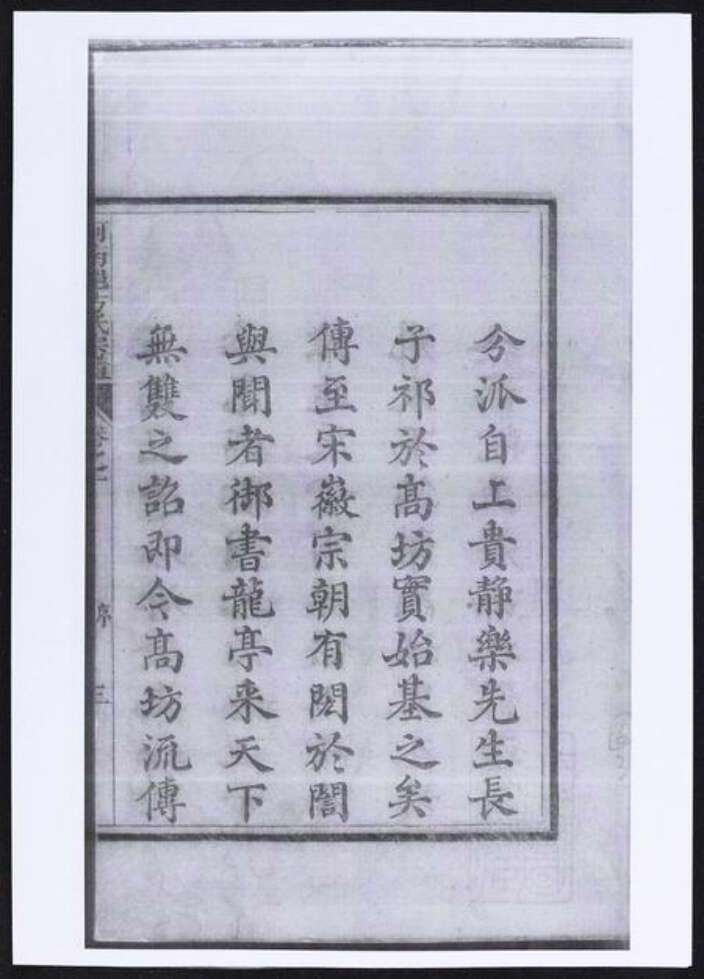 分派自上貴靜樂先生長
子祁於髙坊實始基之矣
傳至宋徽宗朝有閎於誾
與聞者御書龍亭来天下
無雙之詔即今髙坊流傳
序 三